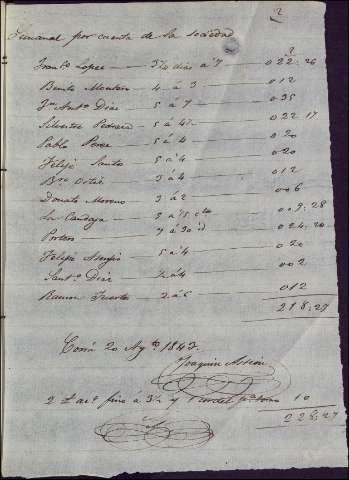 2
Semanal por cuenta de la sociedad
Franco Lopez 3¼ dias a 7 022..26
Benito Montes 4 a 3 012
Jn Anto Dias 5 a 7 035
Silvestre Pedrera 5 á 4½ 022 17
Pablo Perez 5 á 4 020
Felipe Santos 5 á 4 020
Bno Ortiz 3 á 4 012
Donato Moreno 3 á 2 006
La Candaja 2 a 75 cto 009..28
Portero 7 a 30 id 024..24
Felipe 5 a 4 020
Santo Diaz 2 á 4 002
Ramon Fuertes 2 á 6 012
218..27
20 Agto 1843.
Joaquin
2 fino á 3½ y 10
228..27